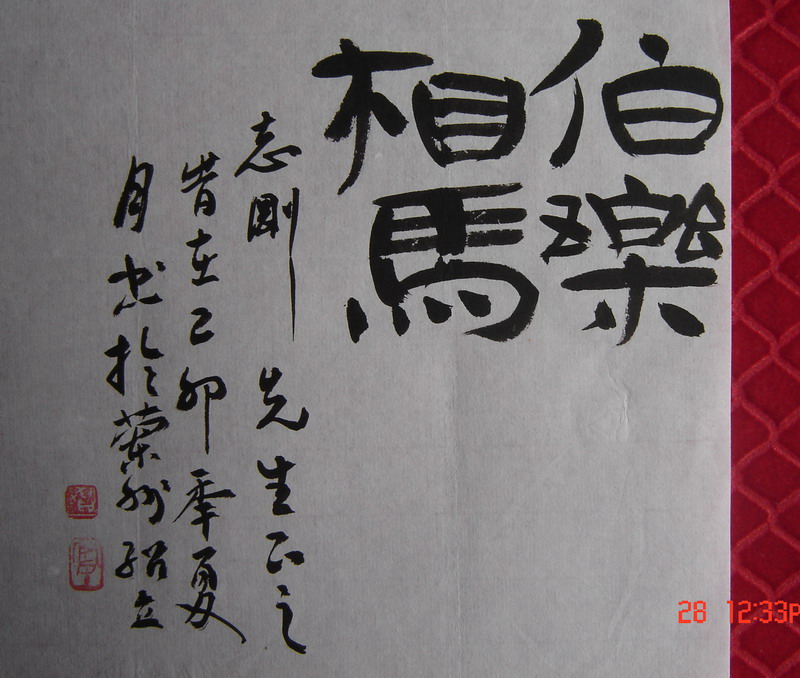 伯樂
相馬
志剛 先生正之
時在己卯年夏
月书於蘭州
28 12:33P